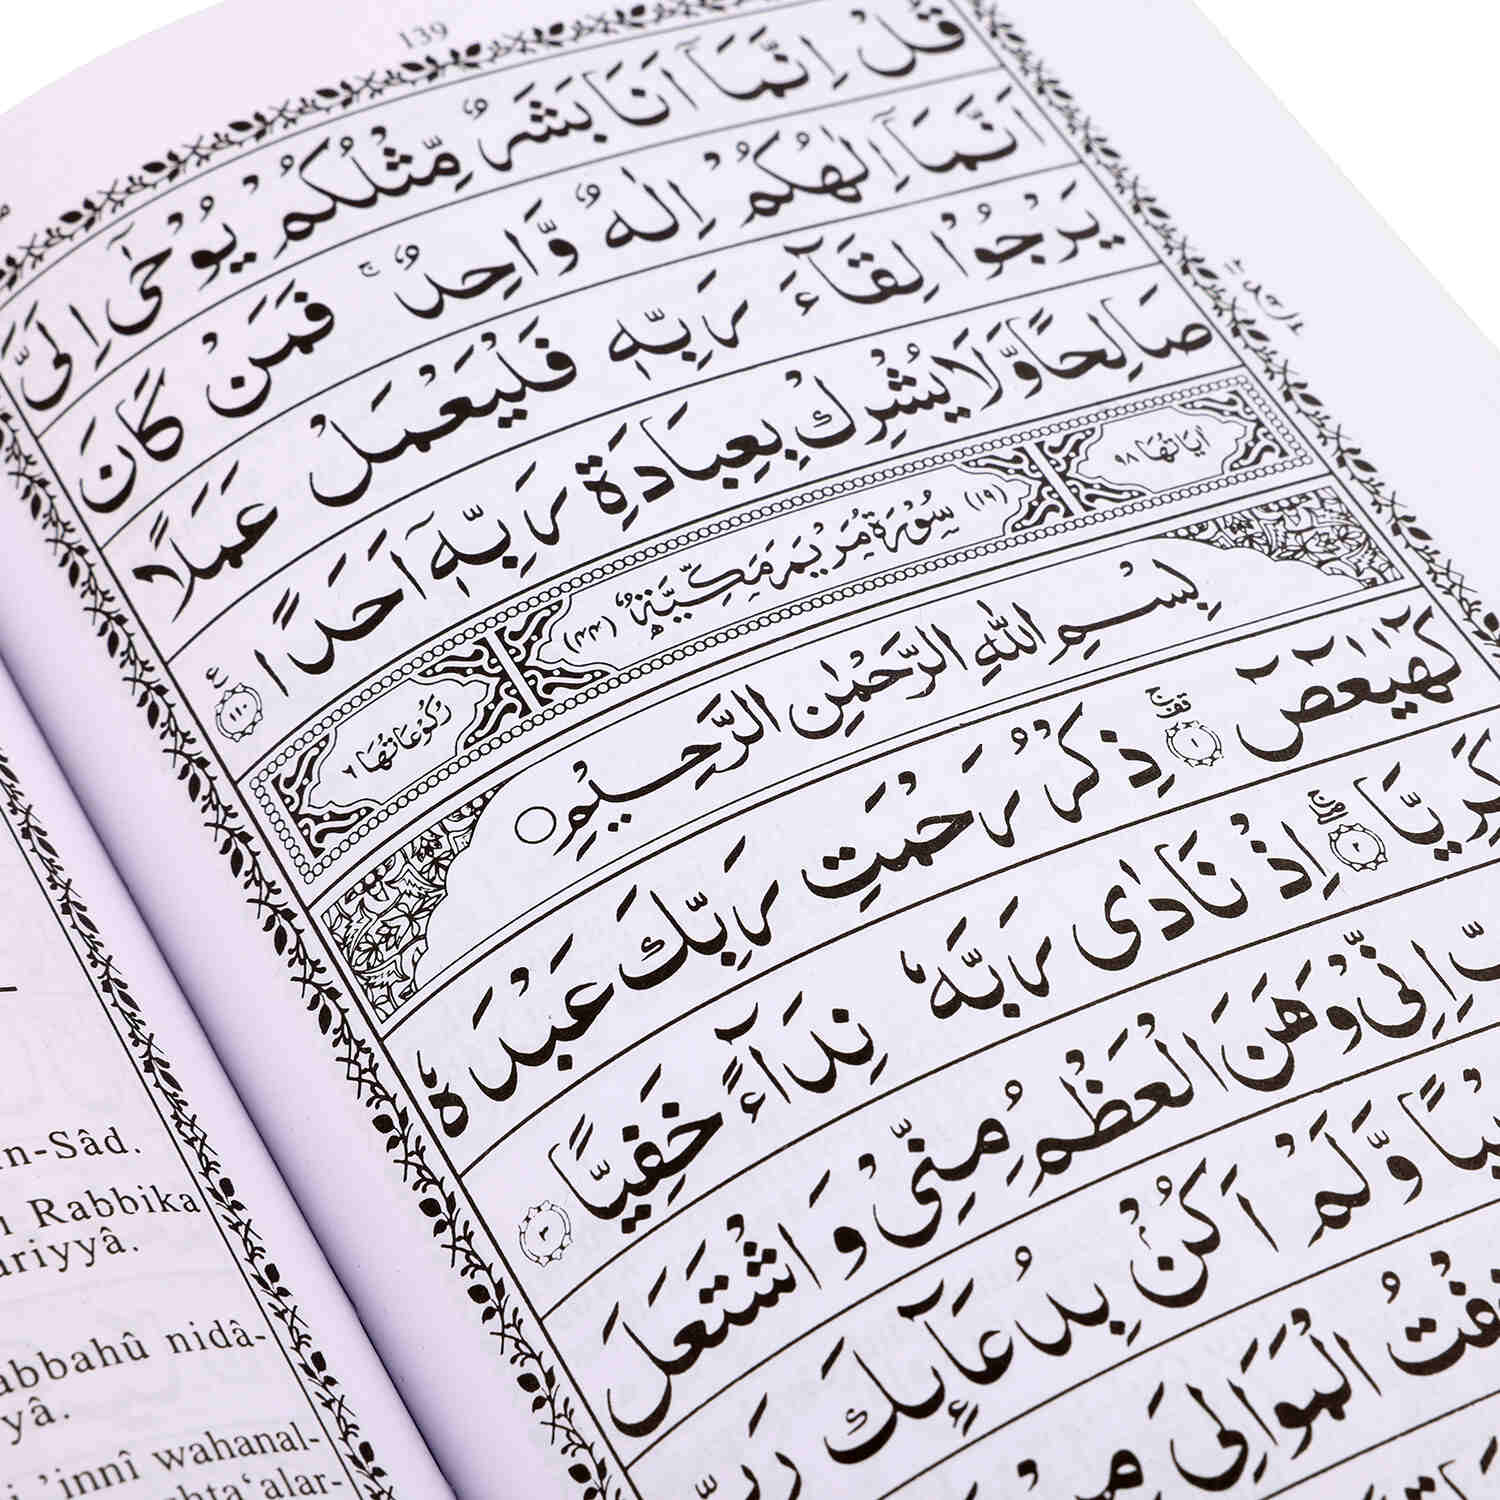 139
قُلْ اِنَّمَآ اَنَا بَشَرٌ مِّثْلُكُمْ يُوْحٰٓى اِلَيَّ
اَنَّمَآ اِلٰهُكُمْ اِلٰهٌ وَّاحِدٌ ۚ فَمَنْ كَانَ
يَرْجُوْا لِقَآءَ رَبِّهٖ فَلْيَعْمَلْ عَمَلًا
صَالِحًا وَّلَا يُشْرِكْ بِعِبَادَةِ رَبِّهٖٓ اَحَدًا ١١٠ ع
اٰيَاتُهَا ٩٨ (١٩) سُوْرَةُ مَرْيَمَ مَكِّيَّةٌ (٤٤) رُكُوْعَاتُهَا ٦
بِسْمِ اللّٰهِ الرَّحْمٰنِ الرَّحِيْمِ
كٓهٰيٰعٓصٓ ١ ذِكْرُ رَحْمَتِ رَبِّكَ عَبْدَهٗ
زَكَرِيَّا ٢ اِذْ نَادٰى رَبَّهٗ نِدَآءً خَفِيًّا ٣
اِنِّيْ وَهَنَ الْعَظْمُ مِنِّيْ وَاشْتَعَلَ
وَّلَمْ اَكُنْ بِدُعَآئِكَ
خِفْتُ الْمَوَالِيَ
n-Sâd.
Rabbika
ariyyâ.
abbahû nidâ-
yâ.
'innî wahanal-
shta‘alar-